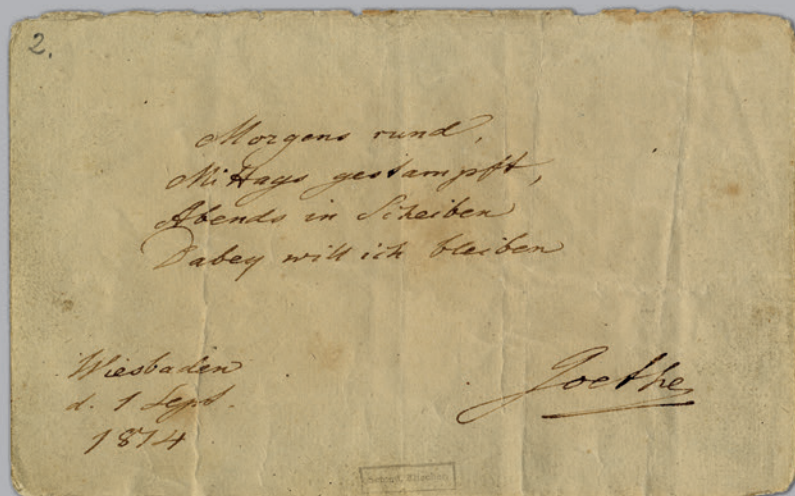 2.
Morgens rund,
Mittags gestampft,
Abends in Scheiben
Dabey will ich bleiben
Wiesbaden
d. 1 Sept.
1814
Goethe